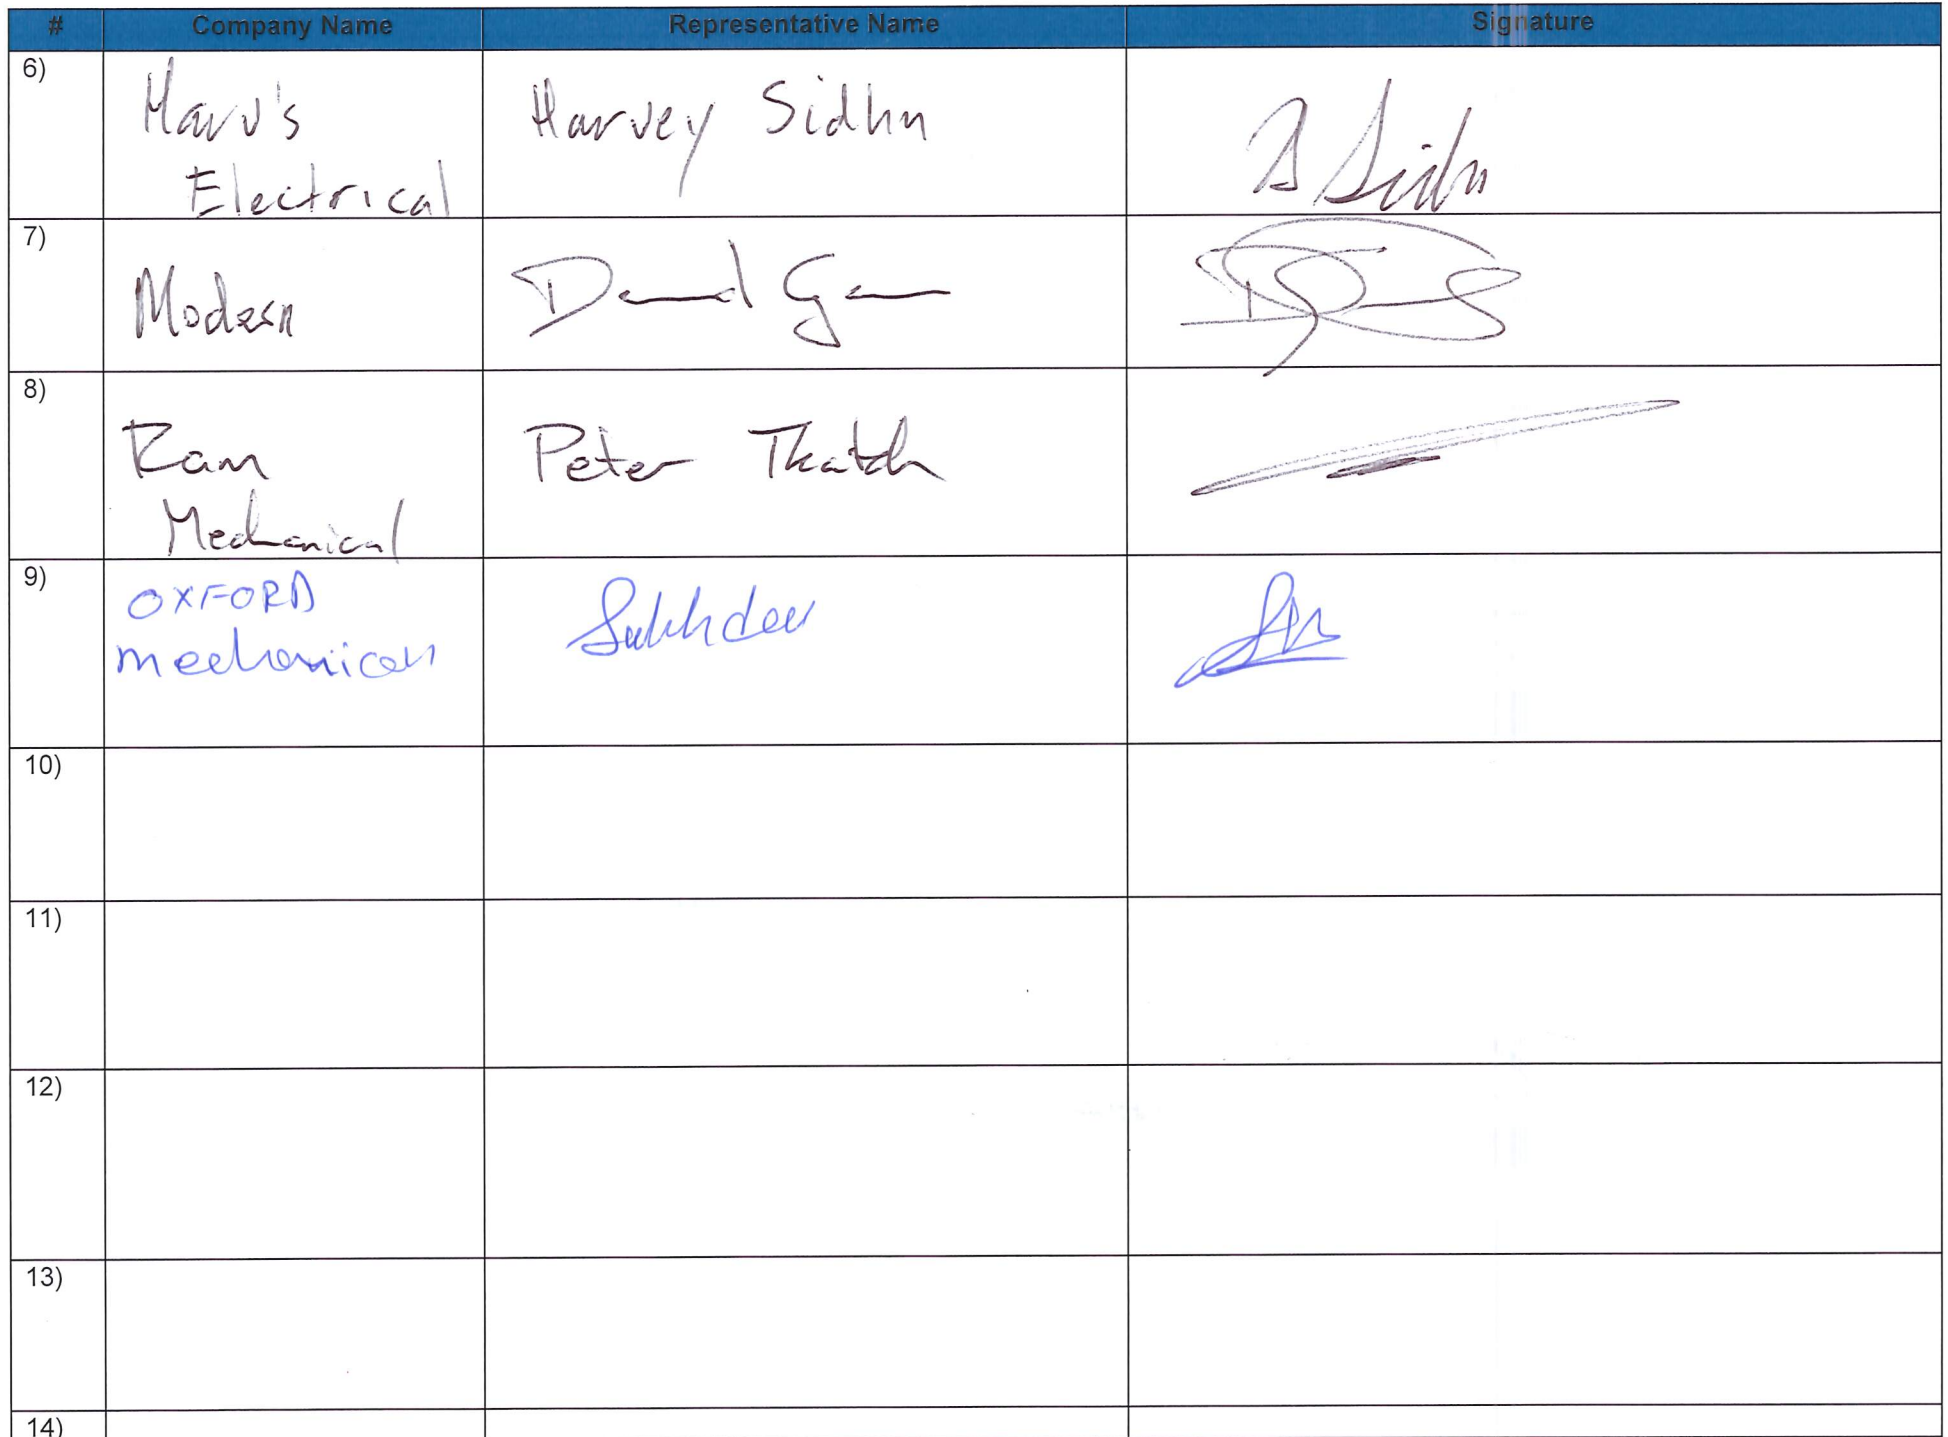 # Company Name Representative Name Signature
6) Harv's Electrical Harvey Sidhu
7) Modern
8) Ram Mechanical Peter Tkatch
9) OXFORD mechanical Sukhdev
10)
11)
12)
13)
14)